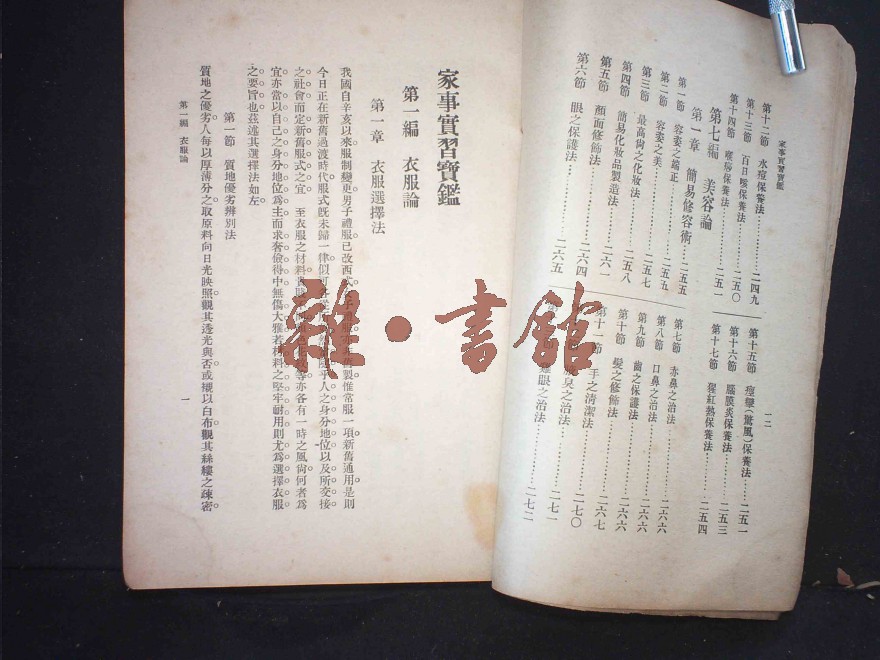 家事實習寶鑑
一二
第十二節 水痘保養法 二四九
第十三節 百日咳保養法 二五〇
第十四節 保養法 二五一
第七編 美容論
第一章 簡易修容術
第一節 容姿之端正 二五五
第二節 容姿之美 二五五
第三節 最高尚之化妝法 二五七
第四節 簡易化妝品製造法 二五八
第五節 顏面修飾法 二六一
第六節 眼之保護法 二六四
二六五
第十五節 痙攣(驚風)保養法 二五一
第十六節 腦膜炎保養法 二五三
第十七節 猩紅熱保養法 二五四
第七節 赤鼻之治法 二六六
第八節 口鼻之治法 二六六
第九節 齒之保護法 二六六
第十節 髮之修飾法 二六六
第十一節 手之清潔法 二六七
臭之治法 二七〇
二七一
眼之治法 二七二
家事實習寶鑑
第一編 衣服論
第一章 衣服選擇法
我國自辛亥以來服制變更男子禮服已改西式 製惟常服一項新舊通用是則
今日正在新舊過渡時代服式既未歸一律似可各 人之身分地位以及所交接
之社會而定新舊服式之宜 至衣服之材料 等亦各有一時之風尚何者為
宜亦當以自己之身分地位為主而求奢儉得中無傷大雅若材料之堅牢耐用則尤為選擇衣服
之要旨也茲述其選擇法如左
第一節 質地優劣辨別法
質地之優劣人每以厚薄分之取原料向日光映照觀其透光與否或襯以白布觀其絲縷之疎密
第一編 衣服論
一
雜·書館